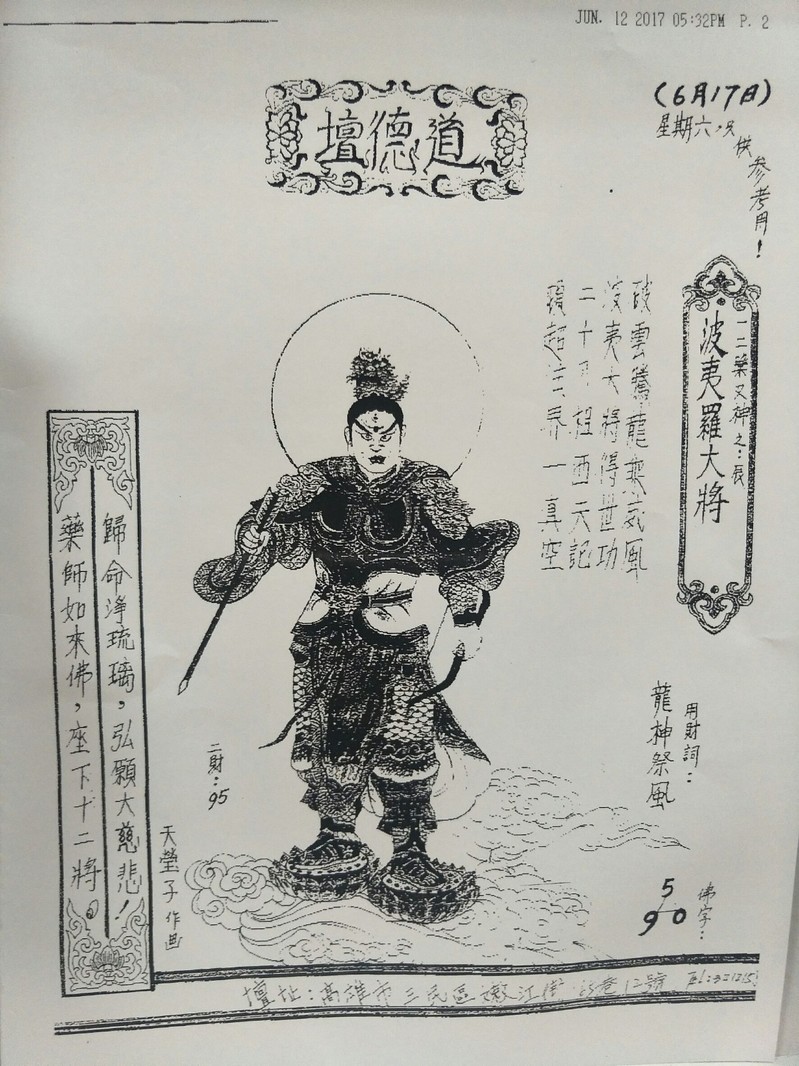 JUN. 12 2017 05:32PM P. 2
(6月17日)
星期六,只
供参考用!
道德壇
一二藥叉神之:辰
波夷羅大將
破雲騰龍無威風
波夷大將得世功
西天記
超 界一真空
用財詞:
龍神祭風
二財:95
歸命淨琉璃,弘願大慈悲!
藥師如來佛,座下十二將。
天瑩子作画
佛字:
5
9 0
壇址:高雄市三民區嫩江街 巷12號